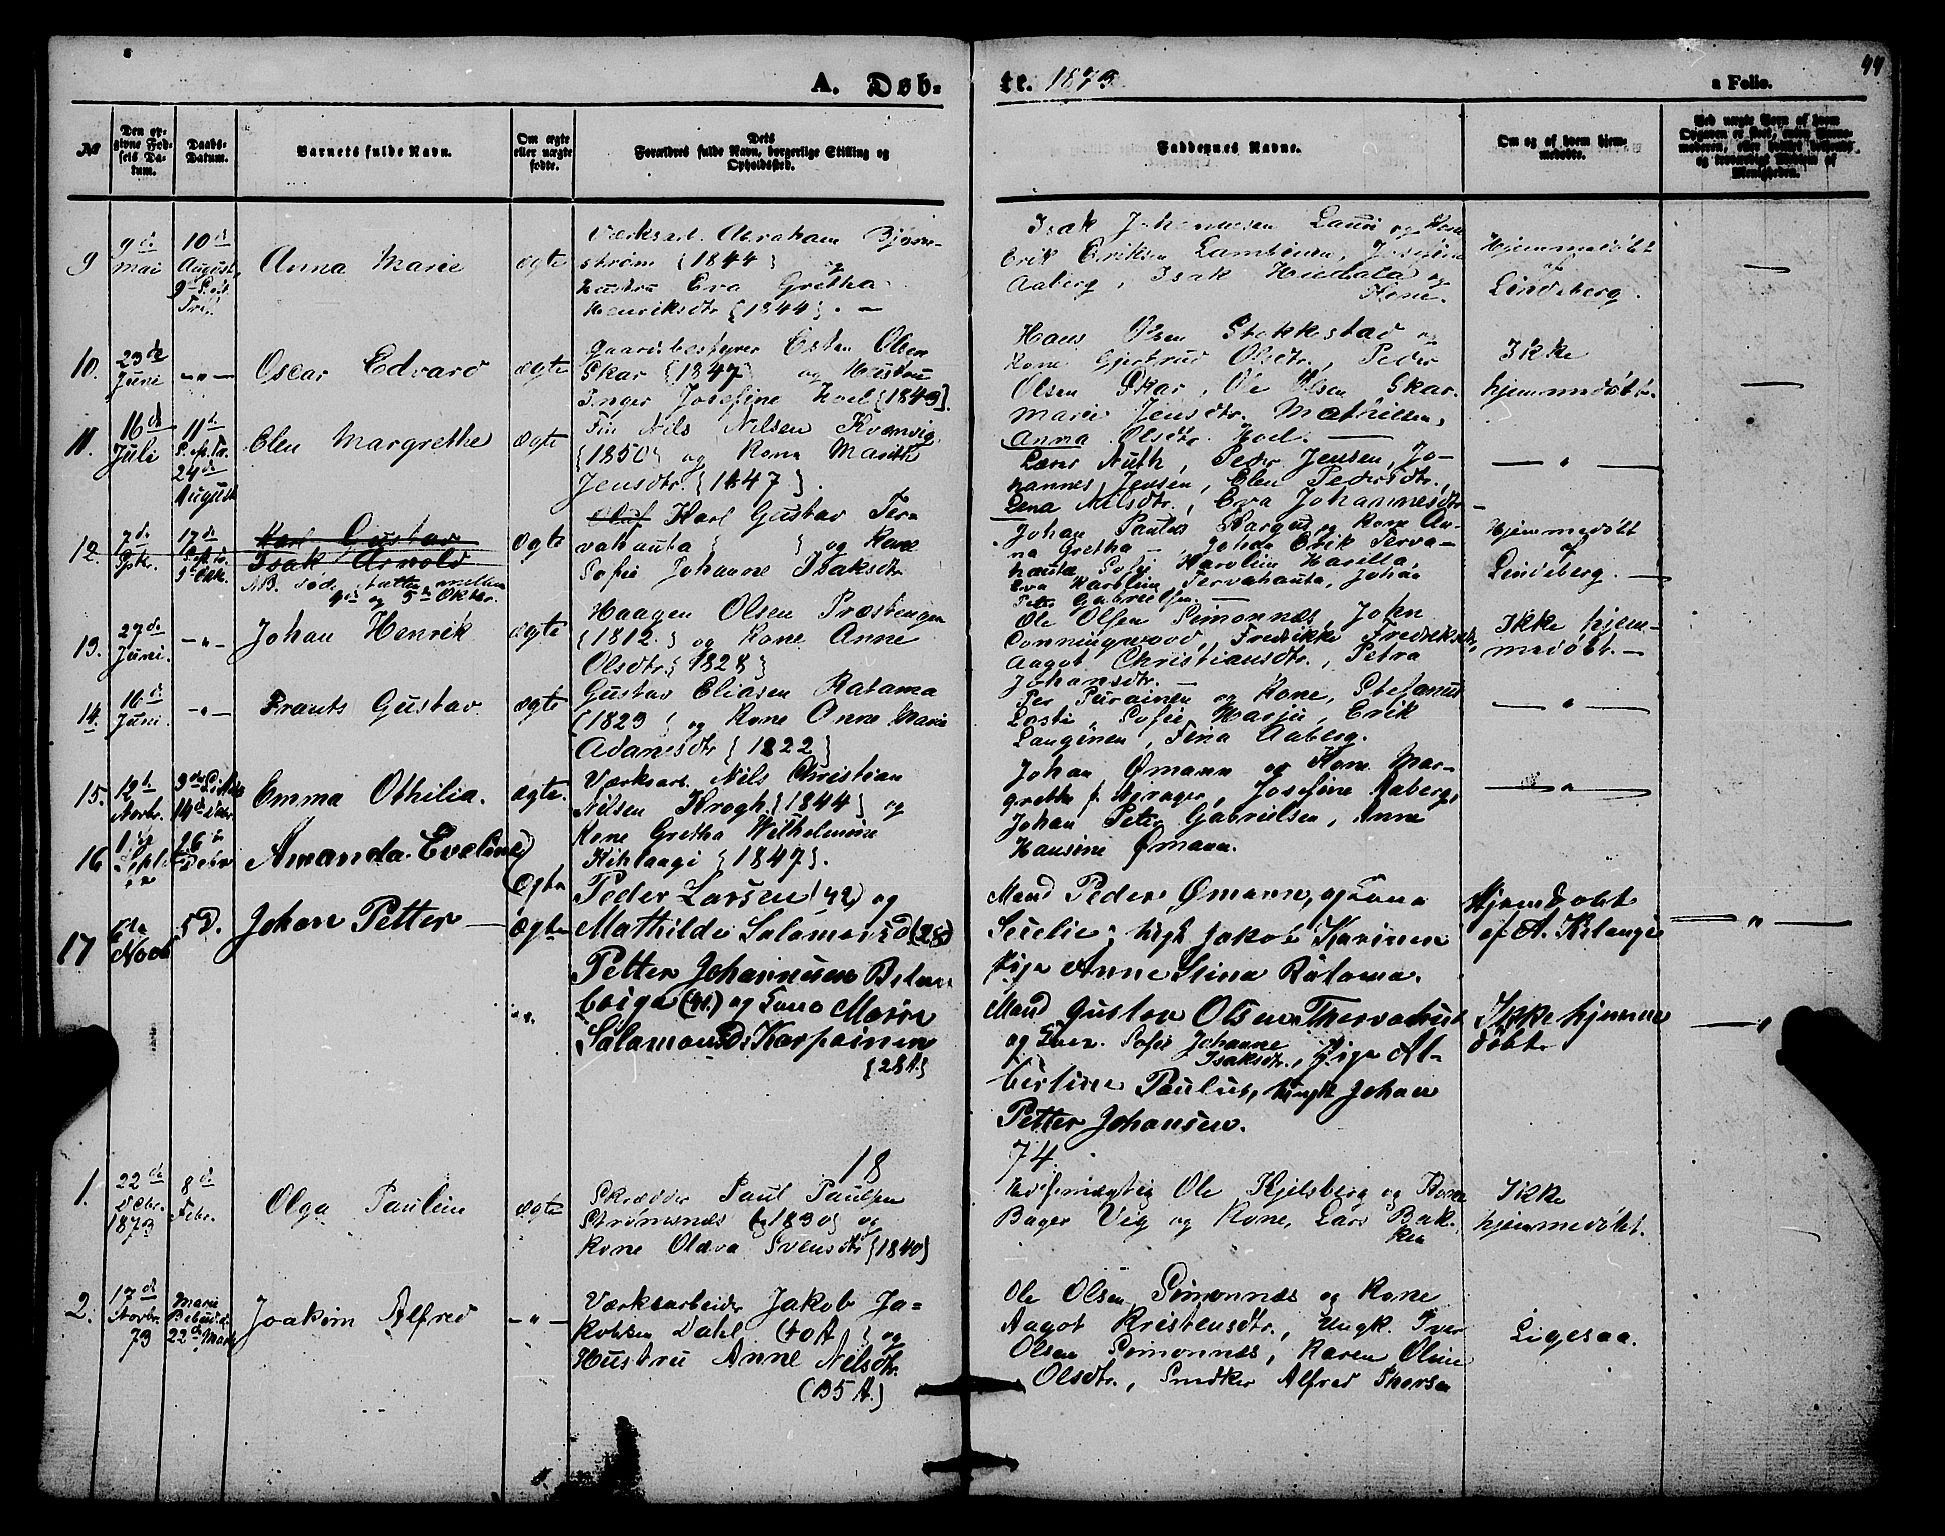 A. Døb-
te. 1873.
a Folio.
44
№
Den opgivne Fødsels Datum.
Daabs-Datum.
Barnets fulde Navn.
Om ægte eller uægte fødte.
Dets Forældres fulde Navn, borgerlige Stilling og Opholdsted.
Faddernes Navne.
Om og af hvem hjemmedøbt.
9
9de
Mai
10de
August
Anna Marie
ægte
Værksarb. Abraham Bjørn-
strøm {1844} og
Hustru Eva Gretha
Henriksdtr {1844}. —
Isak Johannesen Lauri og Kone
Erik Eriksen Lambinen,
Aaberg, Isak og
Kone.
Hjemmedøbt
af
Lindeberg.
—
10.
23de
Juni
— " —
Oscar Edvard
ægte
Gaardsbestyrer Esten Olsen
Skar {1847} og Hustru
Inger Josefine Hoel {1849}.
Hans Olsen Stokkestad og
Kone Gjertrud Olsdtr., Peder
Olsen Skar, Ole Olsen Skar.
Marie Jensdtr. Mathillem,
Anna Olsdtr. Hoel. —
Ikke
hjemmedøbt.
—
11.
16de
Juli
11te
S. ep. Tr.
24de
August
Elen Margrethe
ægte
Fin Nils Nilsen Kvænvig
{1850} og Kone Marith
Jensdtr. {1847}.
Lærer Nuth, Peder Jensen, Jo-
hannes Jensen, Elen Pedersdtr.,
Lena Nilsdtr., Eva Johannesdtr. —
— " —
12.
7de
Sptr.
17de
Karl Gustav
Isak Arnold
NB. død Natten mellem
4de og 5te Oktbr.
ægte
Oluf Karl Gustav Ter-
vahauta { } og Kone
Sofie Johanne Isaksdtr
Johan Paulus og Kone An-
na Gretha —, Johan Erik Terva-
hauta, Sofie Karolein Harilla,
Eva Karolein Tervahauta, Johan
Peter Gabrielsen —
Hjemmedøbt
af
Lindeberg. —
13.
27de
Juni.
— " —
Johan Henrik
ægte
Haagen Olsen Præstengen
{1812.} og Kone Anne
Olsdtr. {1828}
Ole Olsen Simonnæs, John
Conningwood, Fredrikke Fredriksdtr,
Aagot Christiansdtr., Petra
Johansdtr. —
Ikke hjem-
medøbt. —
14.
16de
Juni.
— " —
Frants Gustav
ægte
Gustav Eliasen Ratama
{1823} og Kone Anne Marie
Adamsdtr {1822}
Per Purainen og Kone, Stefanus
Lasti, Sofie Harju, Erik
Langinen, Fina Aaberg.
— " —
15.
12te
Novbr.
14de Dcbr
Emma Othilia.
ægte.
Værksarb. Nils Christian
Nilsen Krogh {1844} og
Kone Gretha Wilhelmine
Kihlangi {1847}.
Johan Ømann og Kone Mar-
grethe f. , Josefine Aaberg,
Johan Peter Gabrielsen, Anne
Hansine Ømann.
— " —
16
Septbr
26de
Debr
Amanda Eveline
Ægte
Peder Larsen (42) og
Mathilde Salamonsd. (28)
Mand Peder Ømann, og Kona
Secelie; Ungk Jakob Karinen
Pige Anne Stina Ratama.
Hjemdøbt
af A. Kilangi
— " —
17
Novb
5 D.
Johan Petter —
ægte
Petter Johannesen
(41.) og Kona Maria
Salamonsd. Karpainen
{28 A.}
Mand Gustav Olsen Thervahuta
og Kone. Sofie Johanne
Isaksdtr., Pige Al-
bertine Paulus, Ungk Johan
Petter Johansen.
Ikke hjemme
døbt
— "
18
74.
1.
22de
Dcbr.
1873
8de
Febr.
Olga Pauline
ægte
Skrædder Paul Paulsen
Strømsnæs {1830} og
Kone Olava Svensdtr {1840}
Ole Kjelsberg og Kone
Bager Vig og Kone, Lars Bak-
ken
Ikke
hjemmedøbt.
2.
17de
Novbr.
73
Mariæ
Bebud. d.
22de Marts
Joakim Alfred
— " —
Værksarbeider Jakob Ja-
kobsen Dahl (40 A.} og
Hustru Anne Nilsdtr.
(35 A.}
Ole Olsen Simonnæs og Kone
Aagot Kristensdtr., Ungk. Iver
Olsen Simonnæs, Karen Oline
Olsdtr., Snedker Alfred Thorsen
Ligesaa.